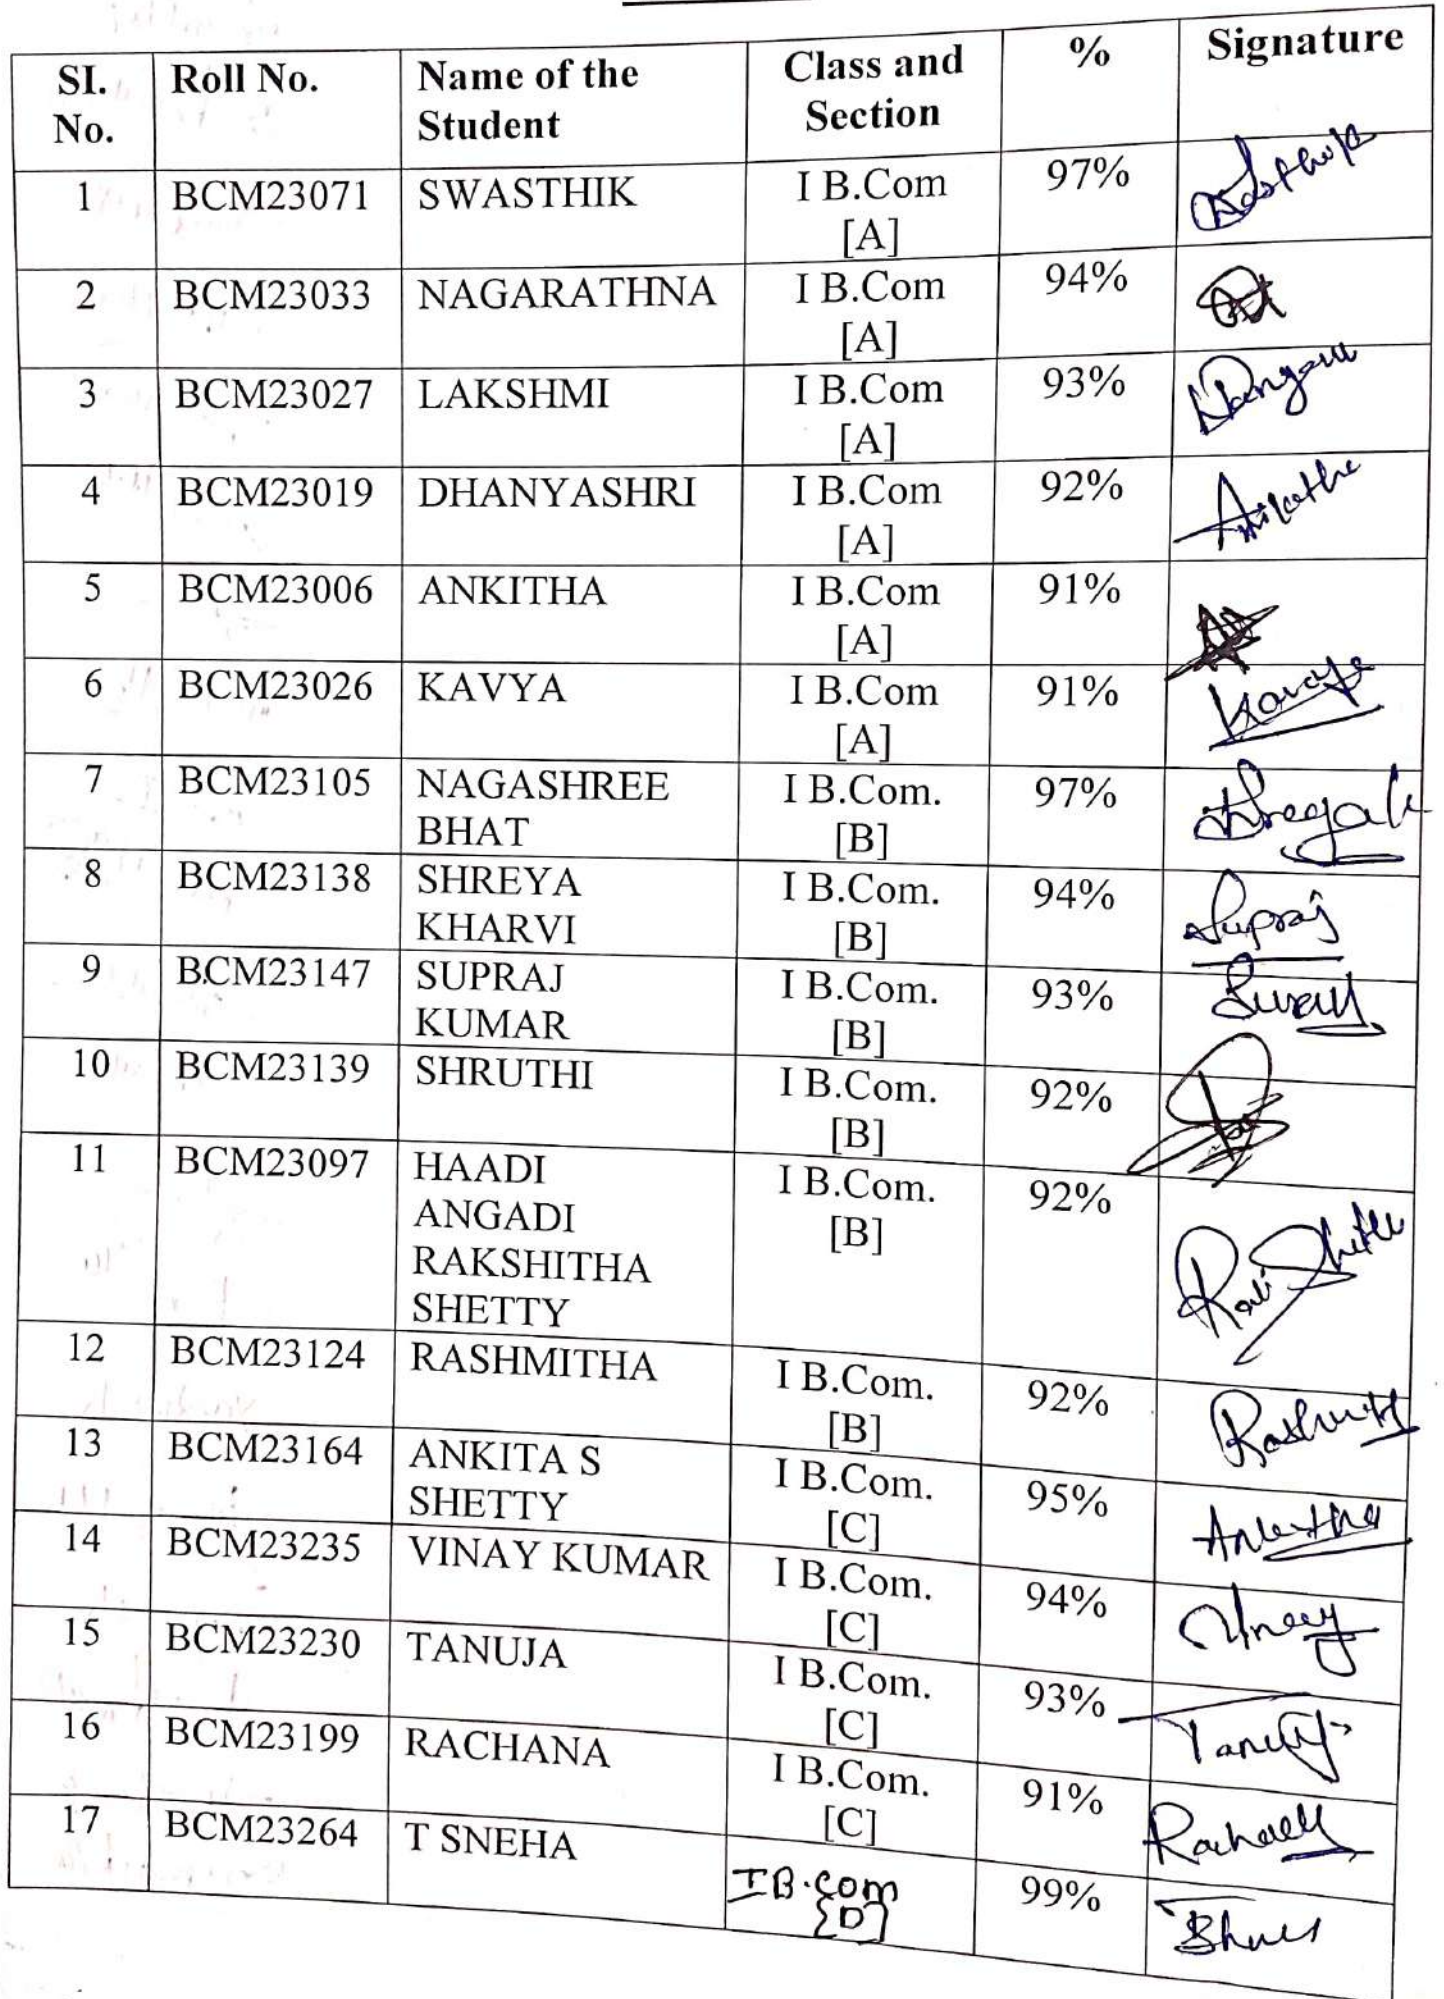 SI. No. Roll No. Name of the Student Class and Section % Signature
1 BCM23071 SWASTHIK I B.Com [A] 97%
2 BCM23033 NAGARATHNA I B.Com [A] 94%
3 BCM23027 LAKSHMI I B.Com [A] 93%
4 BCM23019 DHANYASHRI I B.Com [A] 92%
5 BCM23006 ANKITHA I B.Com [A] 91%
6 BCM23026 KAVYA I B.Com [A] 91% Kavya
7 BCM23105 NAGASHREE BHAT I B.Com. [B] 97%
8 BCM23138 SHREYA KHARVI I B.Com. [B] 94% Supraj
9 BCM23147 SUPRAJ KUMAR I B.Com. [B] 93%
10 BCM23139 SHRUTHI I B.Com. [B] 92%
11 BCM23097 HAADI ANGADI RAKSHITHA SHETTY I B.Com. [B] 92%
12 BCM23124 RASHMITHA I B.Com. [B] 92%
13 BCM23164 ANKITA S SHETTY I B.Com. [C] 95%
14 BCM23235 VINAY KUMAR I B.Com. [C] 94%
15 BCM23230 TANUJA I B.Com. [C] 93%
16 BCM23199 RACHANA I B.Com. [C] 91%
17 BCM23264 T SNEHA I B.com [D] 99%